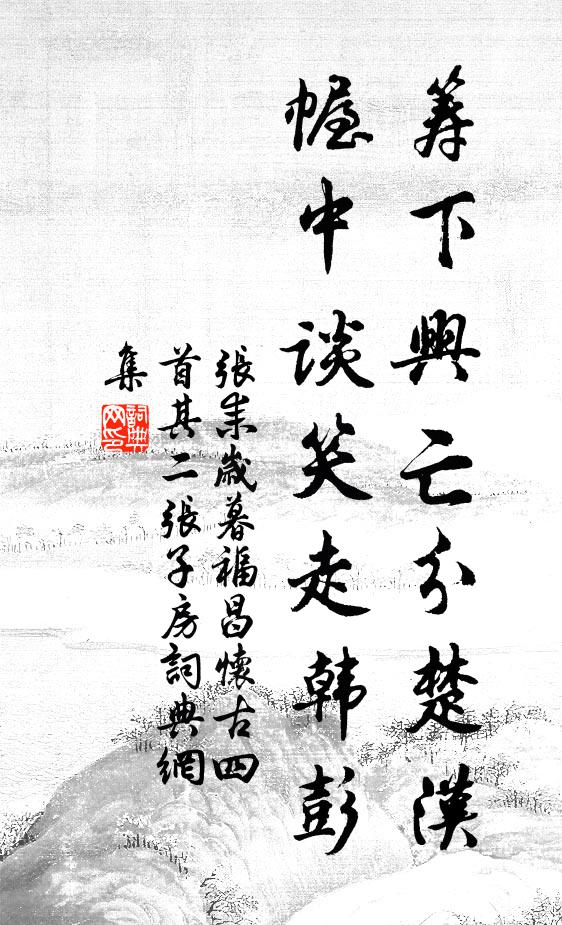 筹下興亡分楚漢
幄中谈笑走韩彭
張耒歲暮福昌懷古四
首其二張子房詞典網
集
詞典
网印